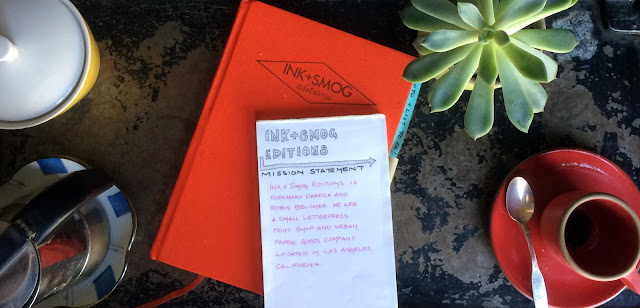 INK+SMOG
editions
INK+SMOG
EDITIONS
MISSION STATEMENT
INK + SMOG EDITIONS IS
ROSEMARY DARDICK AND
ROBIN BELCHER. WE ARE
A SMALL LETTERPRESS
PRINT SHOP AND URBAN
PAPER GOODS COMPANY
LOCATED IN LOS ANGELES,
CALIFORNIA.